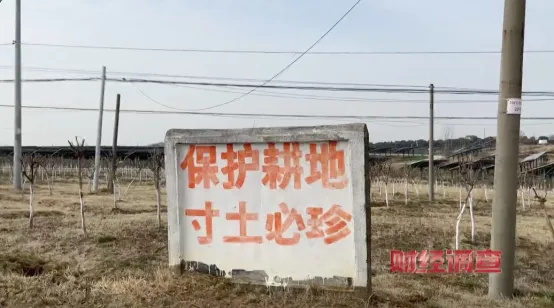 保护耕地
寸土必珍
财经调查